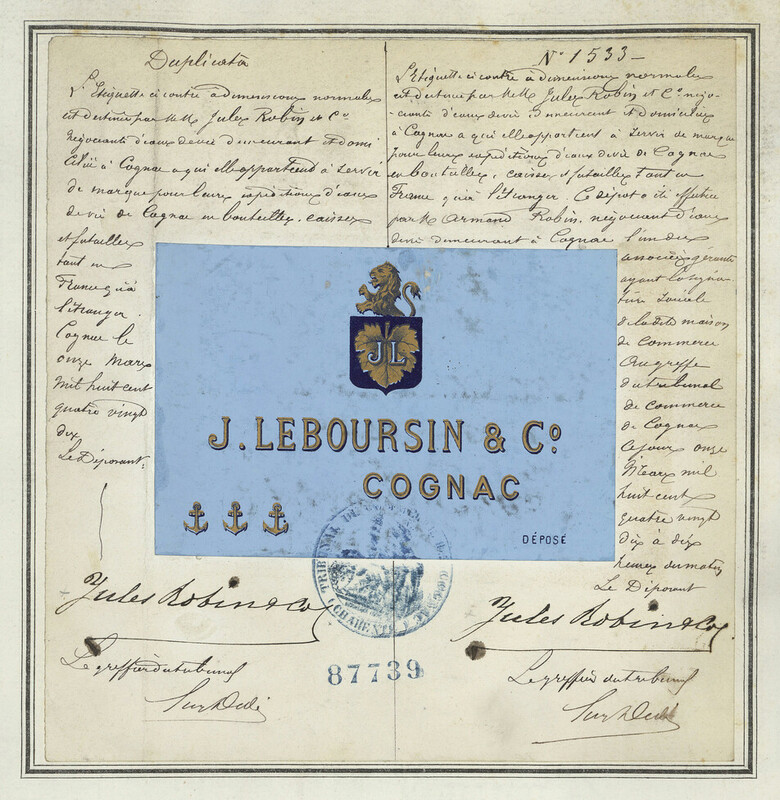 Duplicata
L'Etiquette ci contre à dimensions normales
est destinée par MM Jules Robin et Co
négociants d'eaux de vie demeurant et domi
ciliés à Cognac a qui elle appartient à servir
de marque pour leurs expéditions d'eaux
de vie de Cognac en bouteilles, caisses
et futailles
tant en
France qu'à
l'étranger.
Cognac le
onze Mars
mil huit cent
quatre vingt
dix
Le Déposant:
Jules Robin & Co
Le greffier du tribunal
No 1533
L'Etiquette ci contre à dimensions normales
est destinée par MM Jules Robin et Co négo-
ciants d'eaux de vie demeurent et domiciliés
à Cognac a qui elle appartient à servir de marque
pour leurs expéditions d'eaux de vie de Cognac
en bouteilles, caisses et futailles tant en
France qu'à l'étranger. Ce dépot a été effectué
par M Armand Robin, négociant d'eaux
de vie demeurant à Cognac l'un des
associés gérants
ayant la signa-
ture sociale
de la dite maison
de commerce
Au greffe
du tribunal
de commerce
de Cognac
ce jour onze
Mars mil
huit cent
quatre vingt
dix à dix
heures du matin
Le Déposant
Jules Robin & Co
Le greffier du tribunal
JL
J. LEBOURSIN & Co
COGNAC
DÉPOSÉ
TRIBUNAL DE COMMERCE DE COGNAC
(CHARENTE)
87739